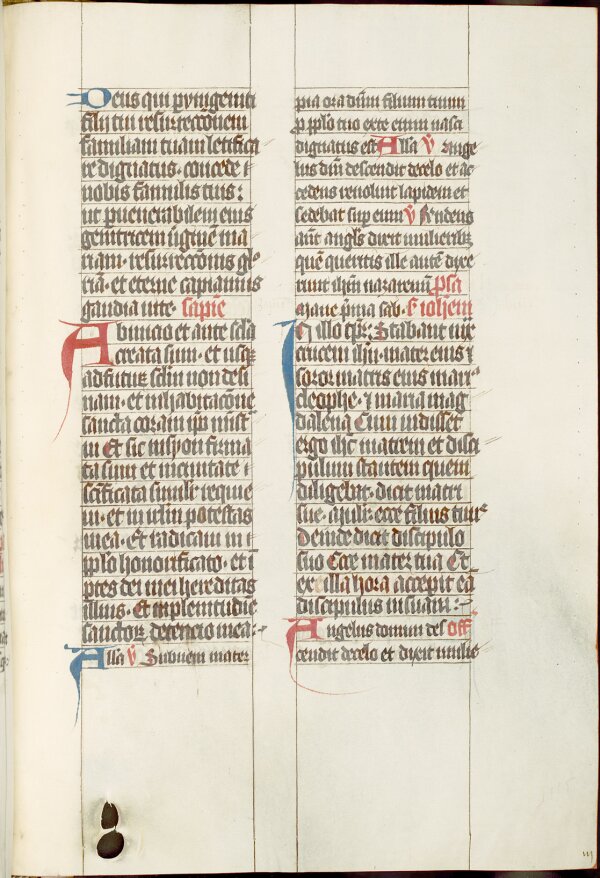 Deus qui vnigeniti
filij tui resurreccōnem
familiam tuam letifica
re dignatus · concede ī
nobis famulis tuis :
ut p uenerabilem eius
genitricem ūgīnē ma
riam · resurreccōnis glo
riā · et eterne capiamus
gaudia uite · sapiē
Ab inicio et ante scl̄a
creata sum · et usq̄
ad futurū sclm non desi
nam · et in habitacōne
sancta coram ipo minist
ui Et sic in syon firma
ta sum et in ciuitate
scīficata similr requie
ui · et in irlm potestas
mea · Et radicaui in
pplo honorificato · et ī
ptes dei mei hereditas
illius · Et in plenitudīe
sanctorꝝ detencio mea :
Alla ꝟ Subuem mater
pia ora dūm filium tuum
p pplo tuo ex te enim nasci
dignatus est Alla ꝟ Ange
lus dn̄i descendit de celo et ac
cedens reuoluit lapidem et
sedebat sup eum ꝟ Rn̄dens
aūt angls dixit mulieribꝫ
quē queritis ille autē dixe
runt ihm nazarenū psa
a pma sab · S iohem
In illo tpr̄ : Stabant iux
crucem ihu · mater eius ⁊
soror matris eius mari
cleophe · ⁊ maria mag
dalena Cum uidisset
ergo ihc matrem et disci
pulum stantem quem
diligebat · dicit matri
sue · mulr · ecce filius tuus
Deinde dicit discipulo
suo Ecce mater tua Et
ex illa hora accepit eā
discipulus in suam :
Angelus domini des off
cendit de celo et dixit mulie